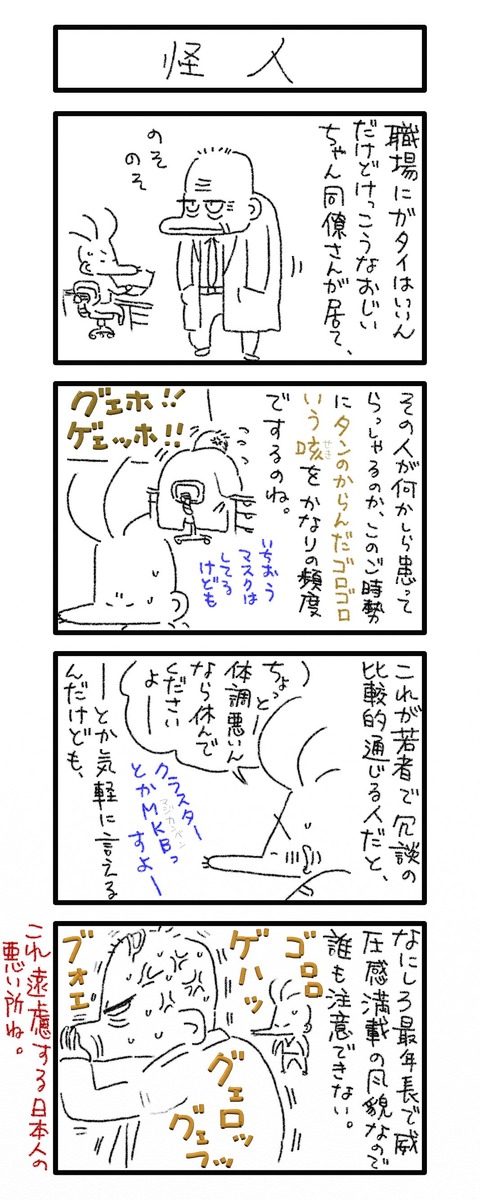 怪人
職場にガタイはいいん
だけどけっこうなおじい
ちゃん同僚さんが居て、
のそ
のそ
その人が何かしら患って
らっしゃるのか、このご時勢
にタンのからんだゴロゴロ
いう咳をかなりの頻度
でするのね。
せき
グェホ!!
ゲェッホ!!
いちおう
マスクは
してる
けども
これが若者で冗談の
比較的通じる人だと、
ちょっとー
体調悪いん
なら休んで
ください
よー
クラスター
とかMKBっ
すよー
マジカンベン
ーとか気軽に言える
んだけども、
なにしろ最年長で威
圧感満載の風貌なので
誰も注意できない。
ゴロロ
ゲハッ
ブォエ
グェロッ
グェフッ
これ遠慮する日本人の
悪い所ね。